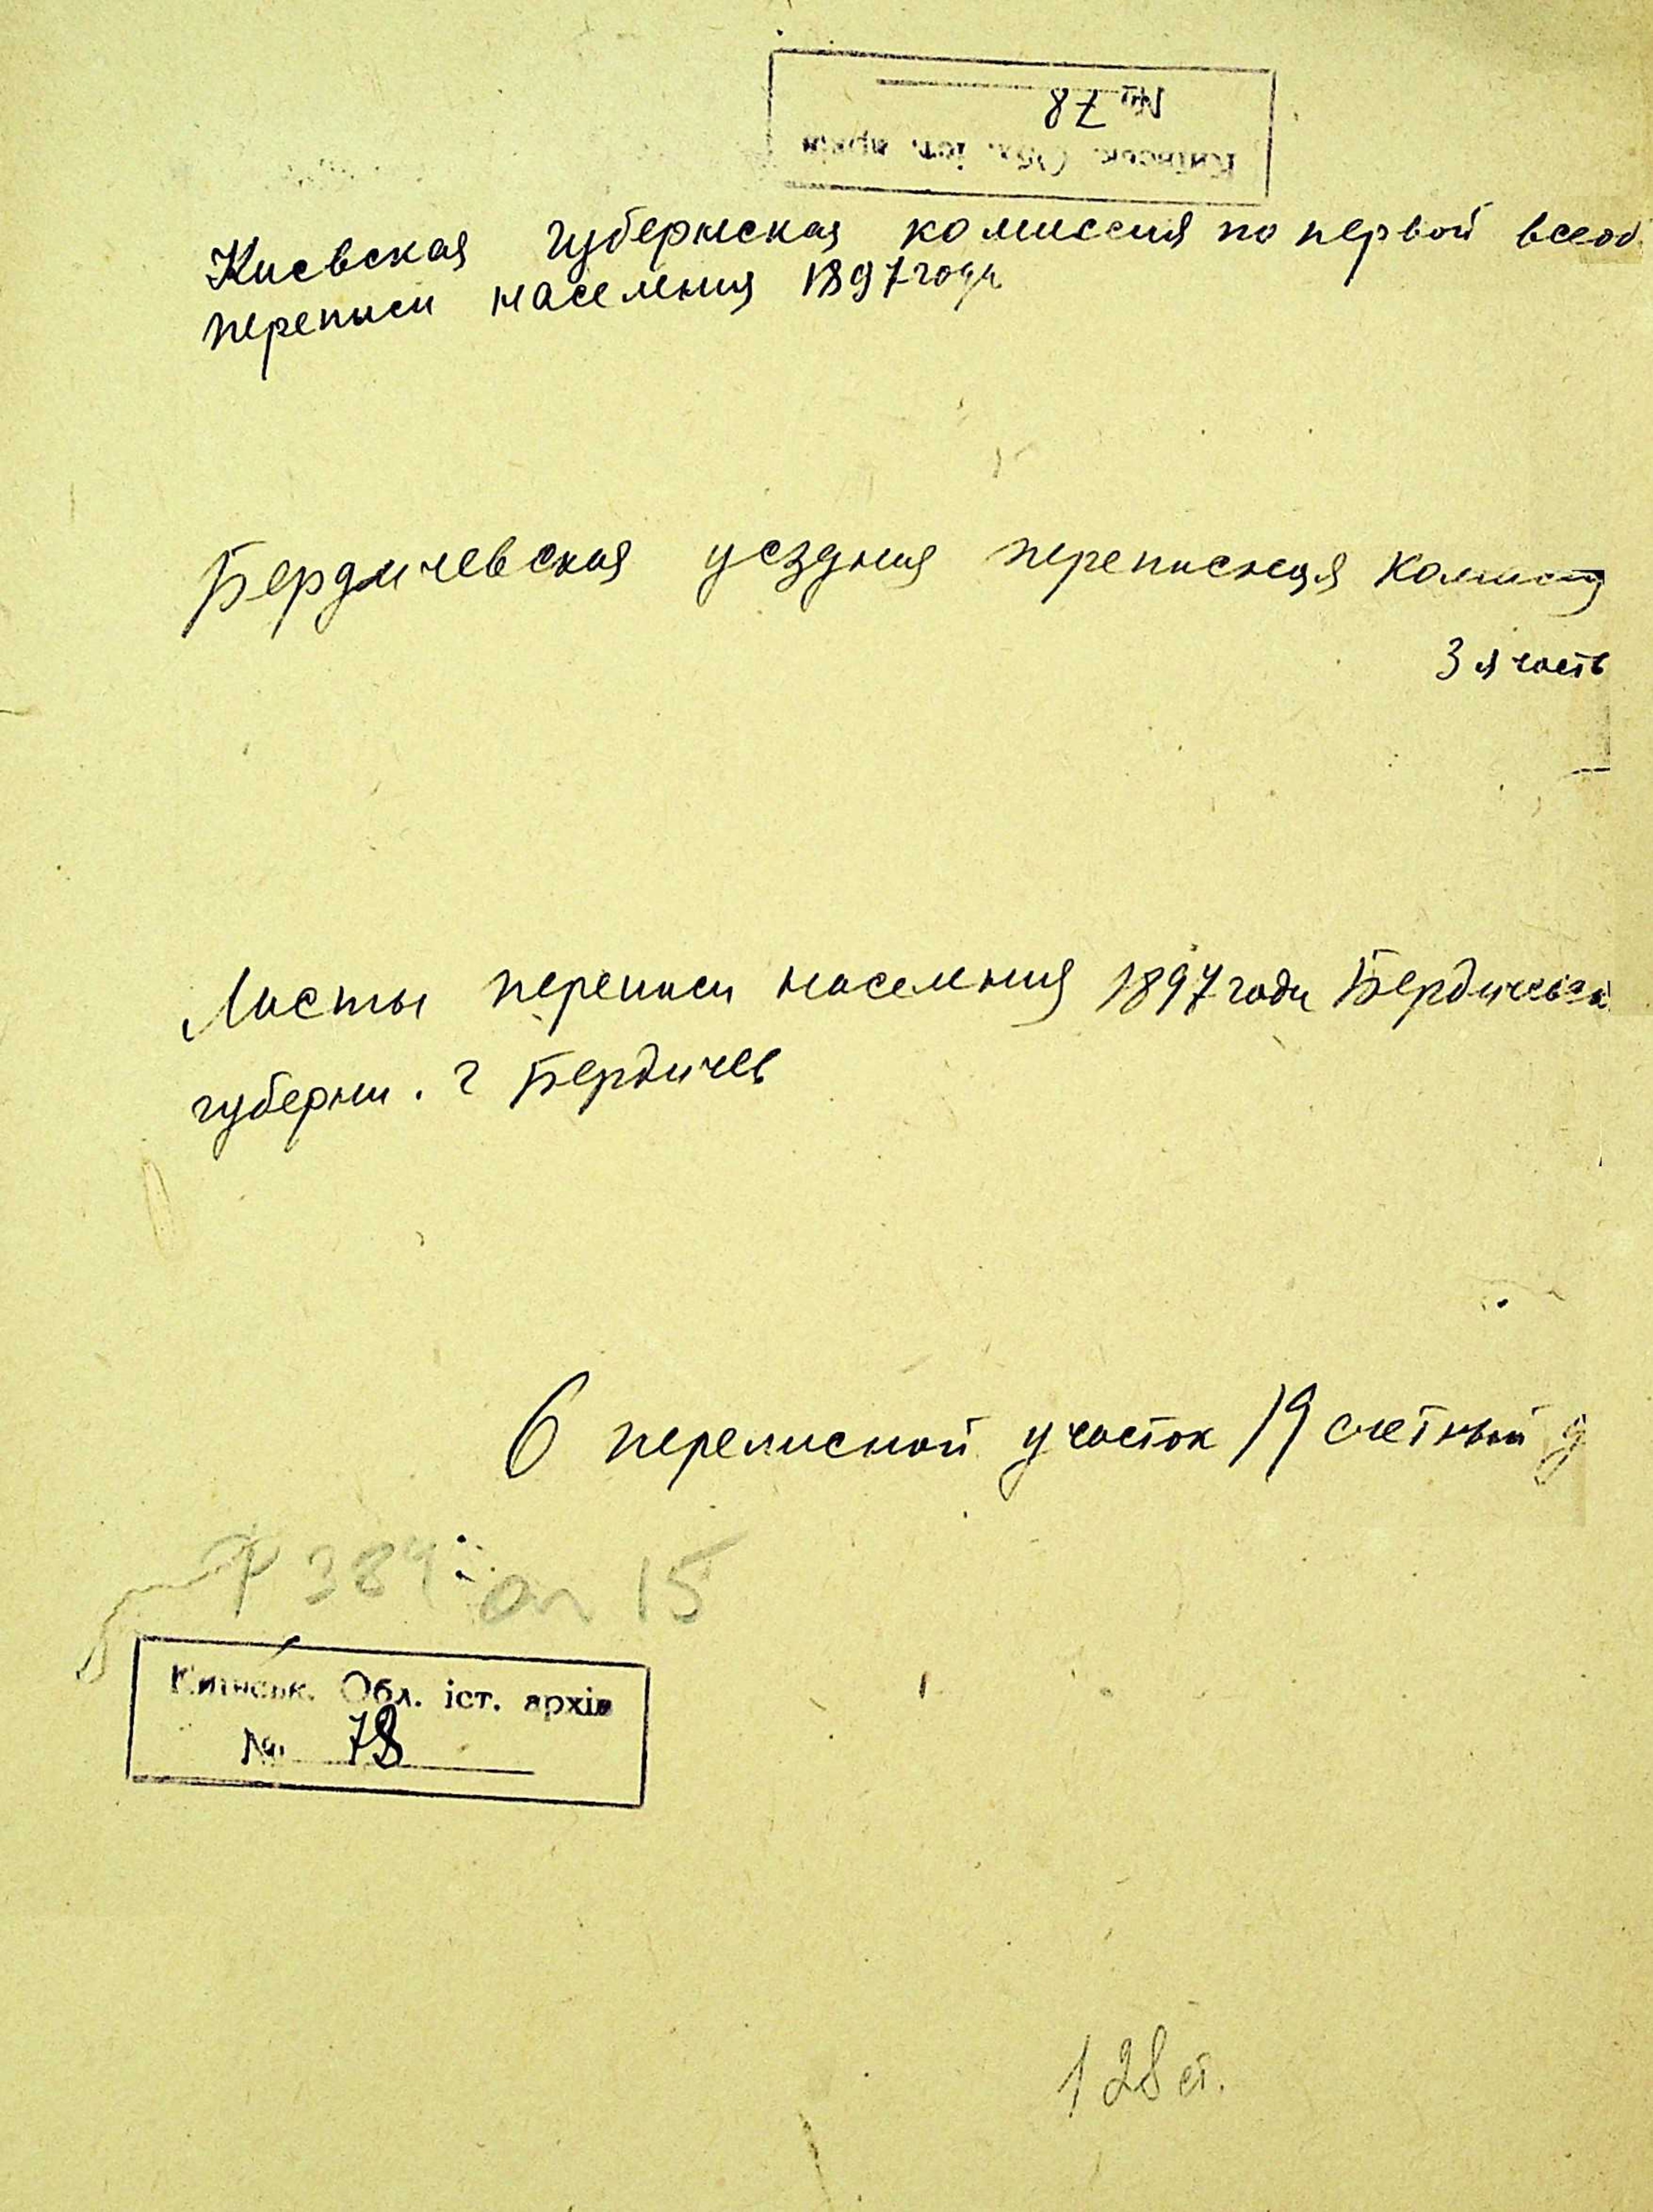 Київськ. Обл. іст. архів
№ 78
Киевская губернская комиссия по первой всеоб
переписи населения 1897 года
Бердичевская уездная переписная
3 я часть
Листы переписи населения 1897 года
губерни. г Бердичев
6 переписной участок 19 счетный у
384 оп 15
Київськ. Обл. іст. архів
№ 78
128 ст.